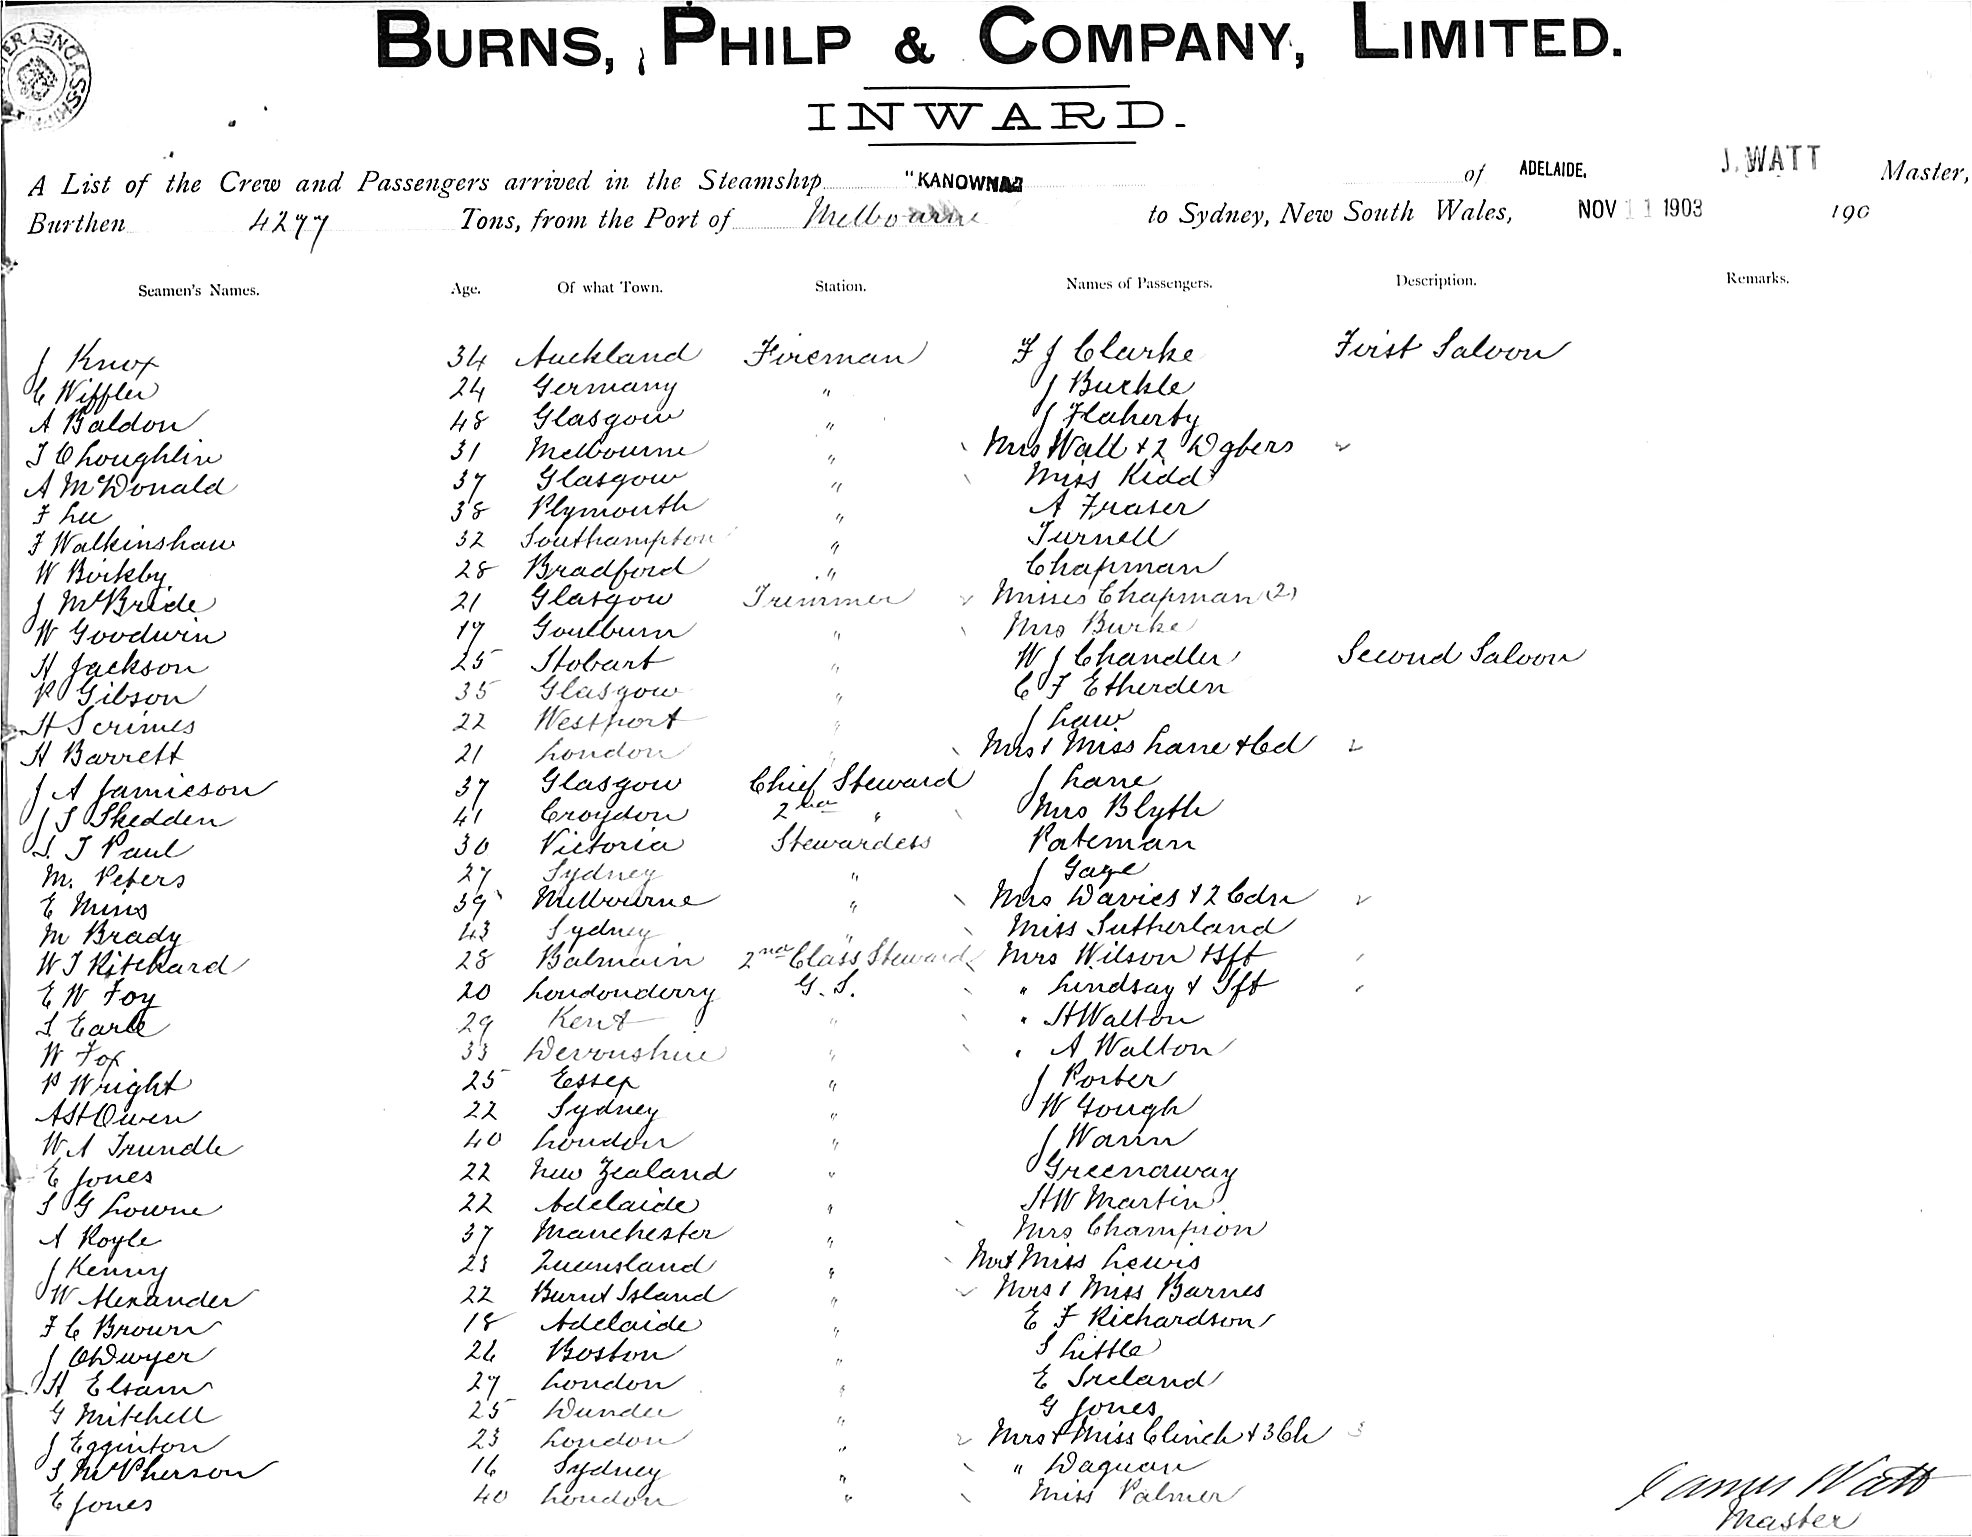 BURNS, PHILP & COMPANY, LIMITED.
INWARD.
A List of the Crew and Passengers arrived in the Steamship "KANOWNA" of ADELAIDE, J. WATT Master,
Burthen 4277 Tons, from the Port of Melbourne to Sydney, New South Wales, NOV 11 1903 190
Seamen's Names. Age. Of what Town. Station. Names of Passengers. Description. Remarks.
J Knox 34 Auckland Fireman F J Clarke First Saloon
C Wiffler 24 Germany " J Buckle
A Baldon 48 Glasgow " J Flaherty
T OLoughlin 31 Melbourne " Mrs Wall + 2 Dgbers
A McDonald 37 Glasgow " Miss Kidd
F Lee 38 Plymouth " A Fraser
F Walkinshaw 32 Southampton " Turnell
W Birkby 28 Bradford " Chapman
J McBride 21 Glasgow Trimmer Misses Chapman (2)
W Goodwin 19 Goulburn " Mrs Burke
H Jackson 25 Hobart " W J Chandler Second Saloon
P Gibson 35 Glasgow " C F Etherden
H Scrimes 22 Westport " J Law
H Barrett 21 London " Mrs & Miss Lane + Cd
J A Jamieson 37 Glasgow Chief Steward J Lane
J S Skedden 41 Croydon 2nd " Mrs Blyth
S. J Paul 30 Victoria Stewardess Pateman
M. Peters 27 Sydney " J Gaze
E Mins 39 Melbourne " Mrs Davies + 2 Cdn
M Brady 43 Sydney " Miss Sutherland
W J Ritchard 28 Balmain 2nd Class Steward Mrs Wilson + Ift
E W Foy 20 Londonderry G. S. " Lindsay + Ift
S Earle 29 Kent " " H Walton
W Fox 33 Devonshire " " A Walton
P Wright 25 Essex " J Porter
A H Owen 22 Sydney " W Gough
W A Trundle 40 London " J Wann
E Jones 22 New Zealand " Greenaway
S G Lowne 22 Adelaide " H W Martin
A Royle 37 Manchester " Mrs Champion
J Kenny 23 Queensland " Mr & Miss Lewis
W Alexander 22 Burnt Island " Mrs & Miss Barnes
F C Brown 18 Adelaide " E F Richardson
J ODwyer 26 Boston " S Little
H Elsam 27 London " E Ireland
G Mitchell 25 Dundee " G Jones
J Egginton 23 London " Mrs + Miss Clinch + 3 Ch 3
S McPherson 16 Sydney " " Daquan
E Jones 40 London " Miss Palmer
James Watt
Master